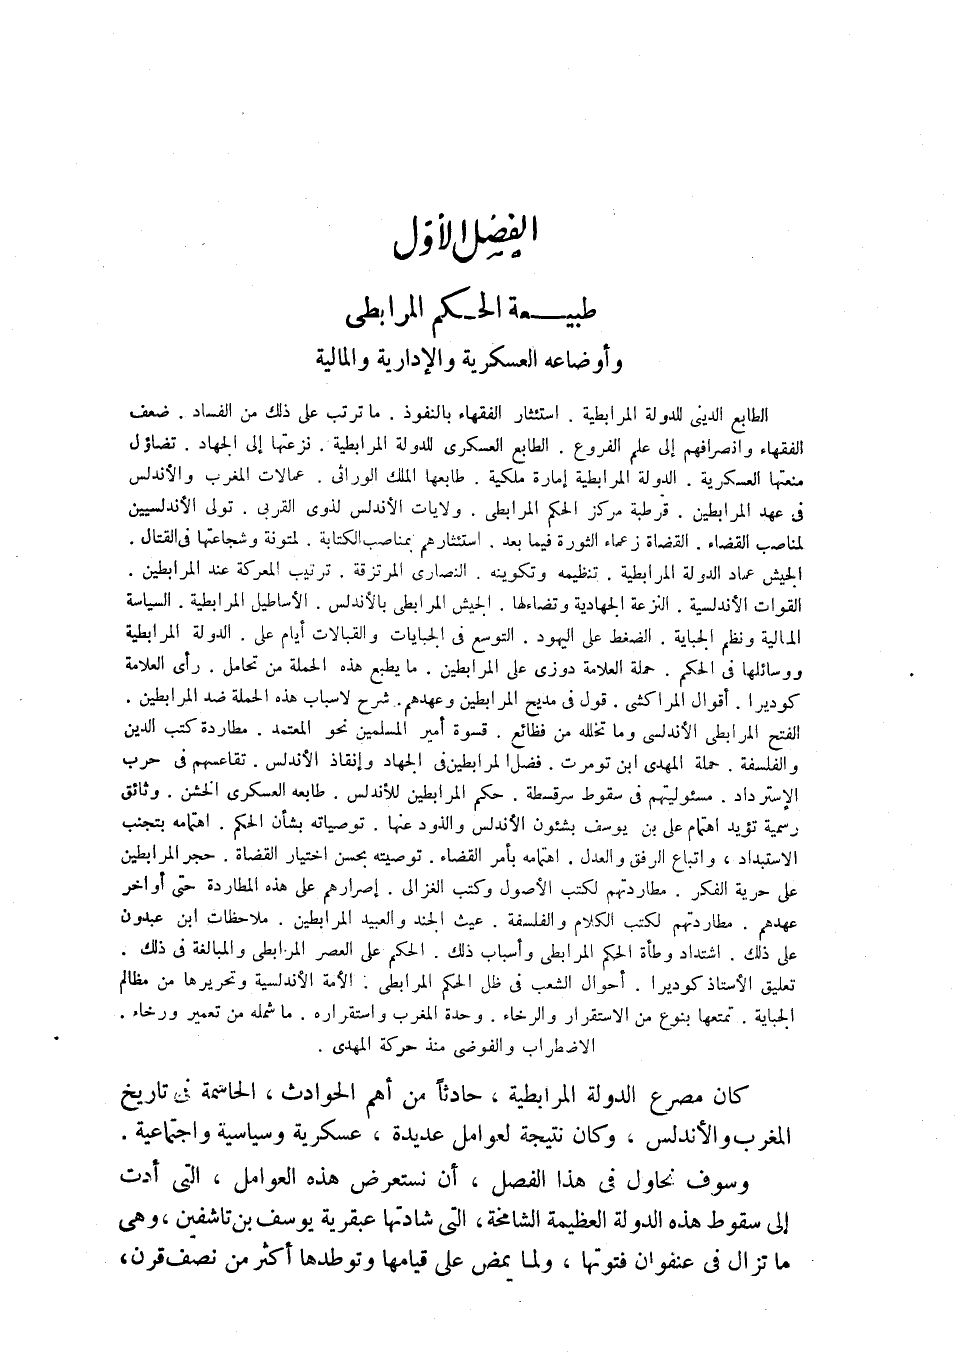 الفصل الأول
طبيعة الحكم المرابطى
وأوضاعه العسكرية والإدارية والمالية
الطابع الدينى للدولة المرابطية . استئثار الفقهاء بالنفوذ . ما ترتب على ذلك من الفساد . ضعف
الفقهاء وانصرافهم إلى علم الفروع . الطابع العسكرى للدولة المرابطية . نزعتها إلى الجهاد . تضاؤل
منعتها العسكرية . الدولة المرابطية إمارة ملكية . طابعها الملك الوراثى . عمالات المغرب والأندلس
فى عهد المرابطين . قرطبة مركز الحكم المرابطى . ولايات الأندلس لذوى القربى . تولى الأندلسيين
لمناصب القضاء . القضاة زعماء الثورة فيما بعد . استئثارهم بمناصب الكتابة . لمتونة وشجاعتها فى القتال .
الجيش عماد الدولة المرابطية . تنظيمه وتكوينه . النصارى المرتزقة . ترتيب المعركة عند المرابطين .
القوات الأندلسية . النزعة الجهادية وتضاءلها . الجيش المرابطى بالأندلس . الأساطيل المرابطية . السياسة
المالية ونظم الجباية . الضغط على اليهود . التوسع فى الجبايات والقبالات أيام على . الدولة المرابطية
ووسائلها فى الحكم . حملة العلامة دوزى على المرابطين . ما يطبع هذه الحملة من تحامل . رأى العلامة
كوديرا . أقوال المراكشى . قول فى مديح المرابطين وعهدهم . شرح لاسباب هذه الحملة ضد المرابطين .
الفتح المرابطى الأندلسى وما تخلله من فظائع . قسوة أمير المسلمين نحو المعتمد . مطاردة كتب الدين
والفلسفة . حملة المهدى ابن تومرت . فضل المرابطين فى الجهاد وإنقاذ الأندلس . تقاعسهم فى حرب
الإسترداد . مسئوليتهم فى سقوط سرقسطة . حكم المرابطين للأندلس . طابعه العسكرى الخشن . وثائق
رسمية تؤيد اهتمام على بن يوسف بشئون الأندلس والذود عنها . توصياته بشأن الحكم . اهتمامه بتجنب
الاستبداد ، واتباع الرفق والعدل . اهتمامه بأمر القضاء . توصيته بحسن اختيار القضاة . حجر المرابطين
على حرية الفكر . مطاردتهم لكتب الأصول وكتب الغزالى . إصرارهم على هذه المطاردة حتى أواخر
عهدهم . مطاردتهم لكتب الكلام والفلسفة . عيث الجند والعبيد المرابطين . ملاحظات ابن عبدون
على ذلك . اشتداد وطأة الحكم المرابطى وأسباب ذلك . الحكم على العصر المرابطى والمبالغة فى ذلك .
تعليق الأستاذ كوديرا . أحوال الشعب فى ظل الحكم المرابطى : الأمة الأندلسية وتحريرها من مظالم
الجباية . تمتعها بنوع من الاستقرار والرخاء . وحدة المغرب واستقراره . ما شمله من تعمير ورخاء .
الاضطراب والفوضى منذ حركة المهدى .
كان مصرع الدولة المرابطية ، حادثاً من أهم الحوادث ، الحاسمة فى تاريخ
المغرب والأندلس ، وكان نتيجة لعوامل عديدة ، عسكرية وسياسية واجتماعية .
وسوف نحاول فى هذا الفصل ، أن نستعرض هذه العوامل ، التى أدت
إلى سقوط هذه الدولة العظيمة الشامخة ، التى شادتها عبقرية يوسف بن تاشفين ، وهى
ما تزال فى عنفوان فتوتها ، ولما يمض على قيامها وتوطدها أكثر من نصف قرن ،